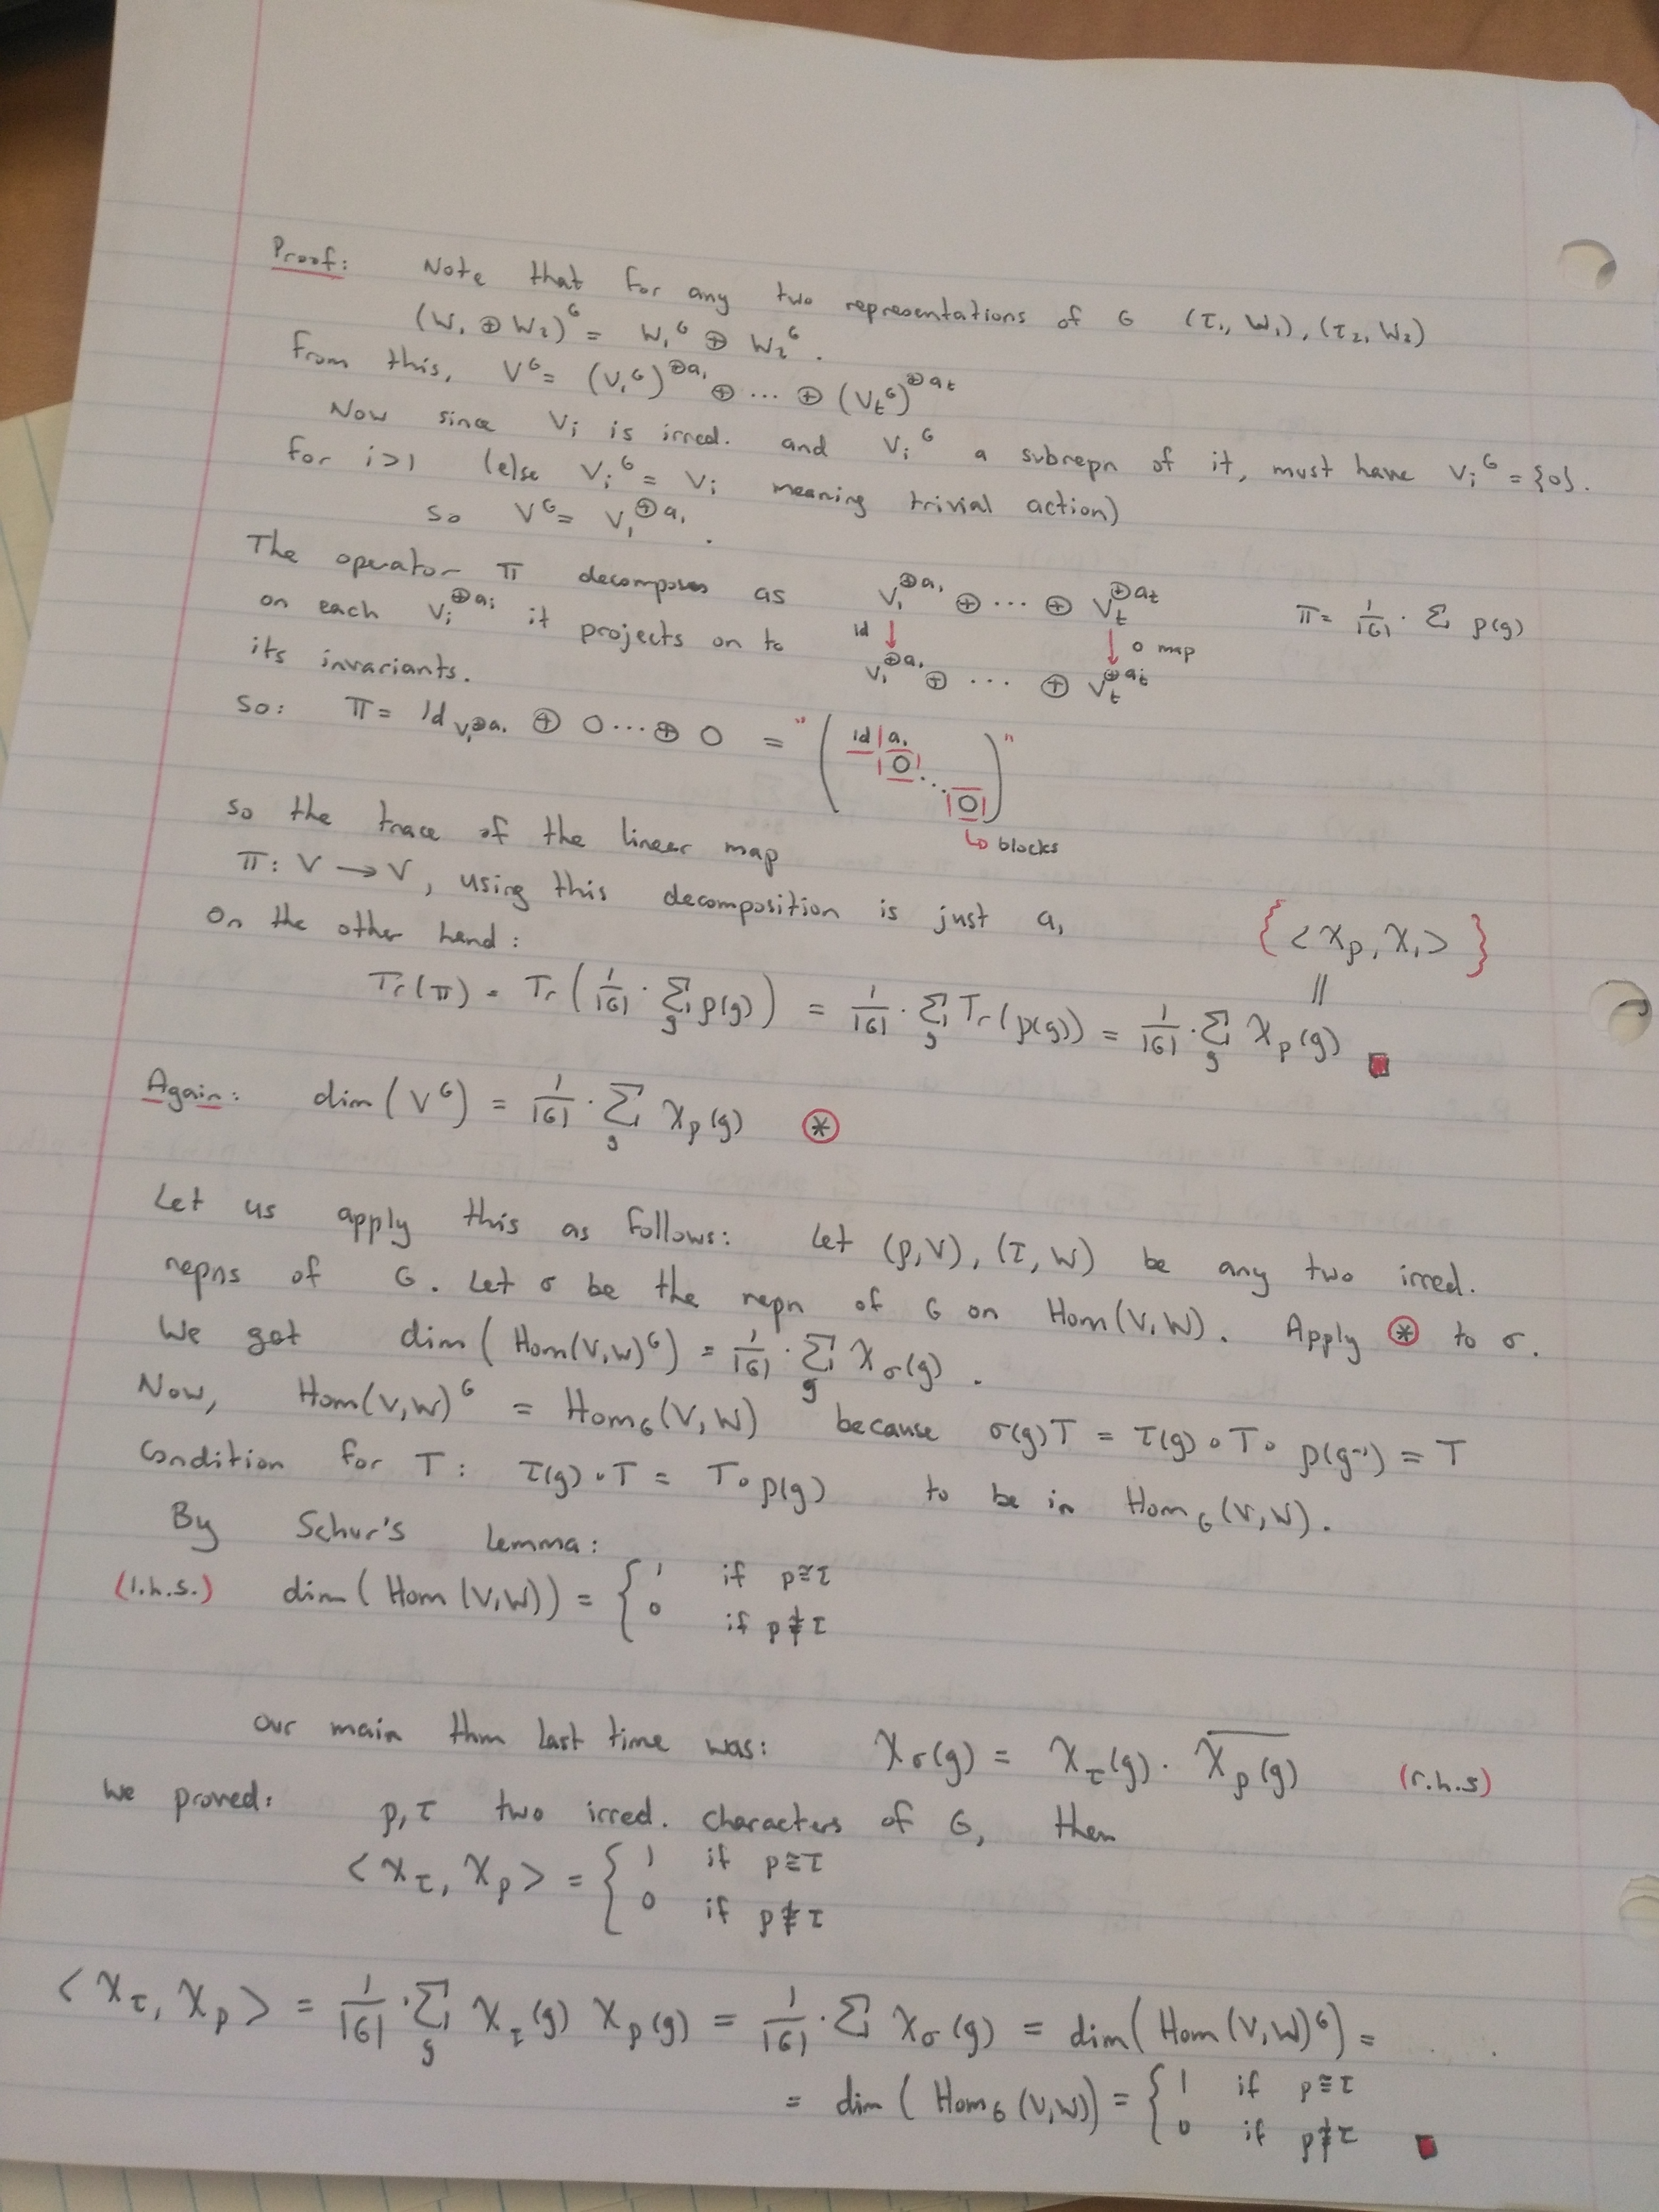 Proof: Note that for any two representations of G (τ₁, W₁), (τ₂, W₂)
(W₁ ⊕ W₂)^G = W₁^G ⊕ W₂^G.
From this, V^G = (V₁^G)^{⊕a₁} ⊕ ... ⊕ (V_t^G)^{⊕a_t}
Now since V_i is irred. and V_i^G a subrepn of it, must have V_i^G = {0}.
for i>1 (else V_i^G = V_i meaning trivial action)
so V^G = V₁^{⊕a₁}.
The operator π decomposes as
on each V_i^{⊕a_i} it projects on to
its invariants.
V₁^{⊕a₁} ⊕ ... ⊕ V_t^{⊕a_t}
id ↓ ↓ 0 map
V₁^{⊕a₁} ⊕ ... ⊕ V_t^{⊕a_t}
π = 1/|G| · Σ ρ(g)
So: π = Id_{V₁^{⊕a₁}} ⊕ 0 ... ⊕ 0 = "( id | a₁ |0| ⋱ |0| )"
↳ blocks
so the trace of the linear map
π: V → V, using this decomposition is just a₁
On the other hand:
{ <χ_ρ, χ₁> }
||
Tr(π) = Tr(1/|G| · Σ_g ρ(g)) = 1/|G| · Σ_g Tr(ρ(g)) = 1/|G| · Σ_g χ_ρ(g) ■
Again: dim(V^G) = 1/|G| · Σ_g χ_ρ(g) ⊛
Let us apply this as follows: Let (ρ,V), (τ,W) be any two irred.
repns of G. Let σ be the repn of G on Hom(V,W). Apply ⊛ to σ.
We get dim(Hom(V,W)^G) = 1/|G| · Σ_g χ_σ(g).
Now, Hom(V,W)^G = Hom_G(V,W) because σ(g)T = τ(g)∘T∘ρ(g⁻¹) = T
Condition for T: τ(g)∘T = T∘ρ(g) to be in Hom_G(V,W).
By Schur's Lemma:
(l.h.s.) dim(Hom(V,W)) = { 1 if ρ≅τ
0 if ρ≇τ
our main thm last time was: χ_σ(g) = χ_τ(g) · \overline{χ_ρ(g)} (r.h.s)
We proved: ρ,τ two irred. characters of G, then
<χ_τ, χ_ρ> = { 1 if ρ≅τ
0 if ρ≇τ
<χ_τ, χ_ρ> = 1/|G| · Σ_g χ_τ(g) χ_ρ(g) = 1/|G| · Σ χ_σ(g) = dim(Hom(V,W)^G) =
= dim(Hom_G(V,W)) = { 1 if ρ≅τ
0 if ρ≇τ ■